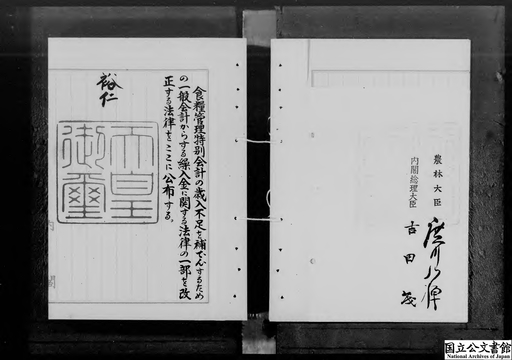 農林大臣 広川弘禅
内閣総理大臣 吉田茂
食糧管理特別会計の歳入不足を補てんするため
の一般会計からする繰入金に関する法律の一部を改
正する法律をここに公布する。
裕仁
天皇
御璽
国立公文書館
National Archives of Japan